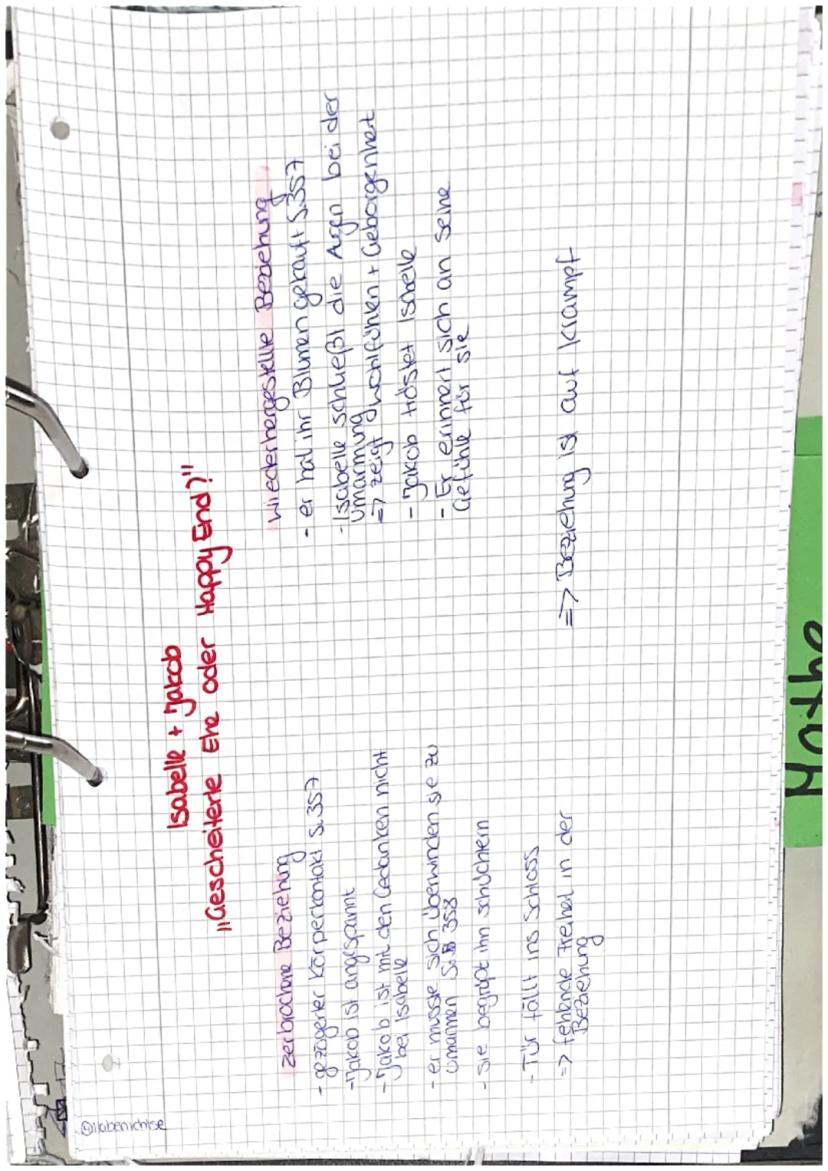 Isabelle + Jakob
"Gescheiterte Ehe oder Happy End?"
zerbrochene Beziehung
- gezögerter Körperkontakt S.357
- Jakob ist angespannt
- Jakob ist mit den Gedanken nicht
bei Isabelle
- er musste sich überwinden sie zu
umarmen S. 358
- sie begrüßt ihn schüchtern
- Tür fällt ins Schloss
=> fehlende Freiheit in der
Beziehung
wiederhergestellte Beziehung
- er hat ihr Blumen gekauft S.357
- Isabelle schließt die Augen bei der
Umarmung
=> zeigt wohlfühlen + Geborgenheit
- Jakob tröstet Isabelle
- Er erinnert sich an seine
Gefühle für sie
=> Beziehung ist auf Krampf
Mathe